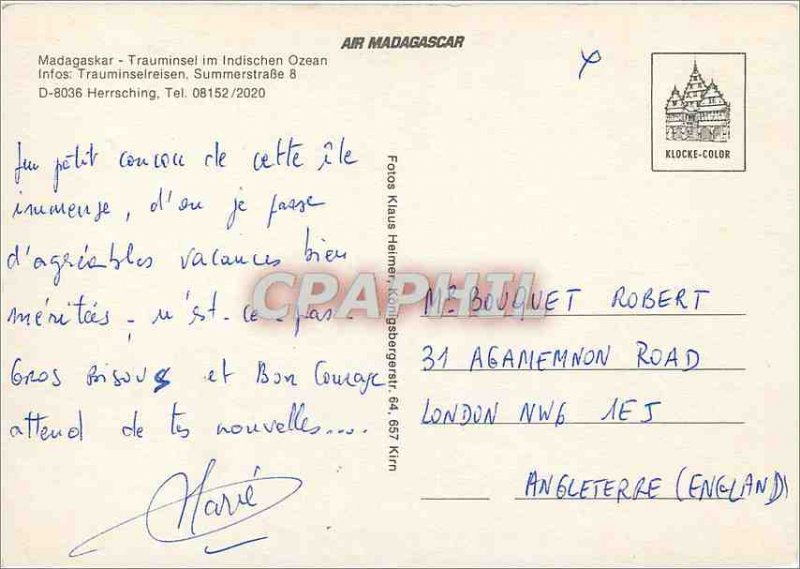 AIR MADAGASCAR
Madagaskar - Trauminsel im Indischen Ozean
Infos: Trauminselreisen, Summerstraße 8
D-8036 Herrsching, Tel. 08152/2020
KLOCKE-COLOR
Un petit coucou de cette île
immense, d'ou je passe
d'agréables vacances bien
méritées, n'est-ce-pas.
Gros Bisous et Bon Courage
attend de tes nouvelles....
Fotos Klaus Heimer, Königsbergerstr. 64, 657 Kirn
Mr BOUQUET ROBERT
31 AGAMEMNON ROAD
LONDON NW6 1EJ
ANGLETERRE (ENGLAND)
CPAPHIL